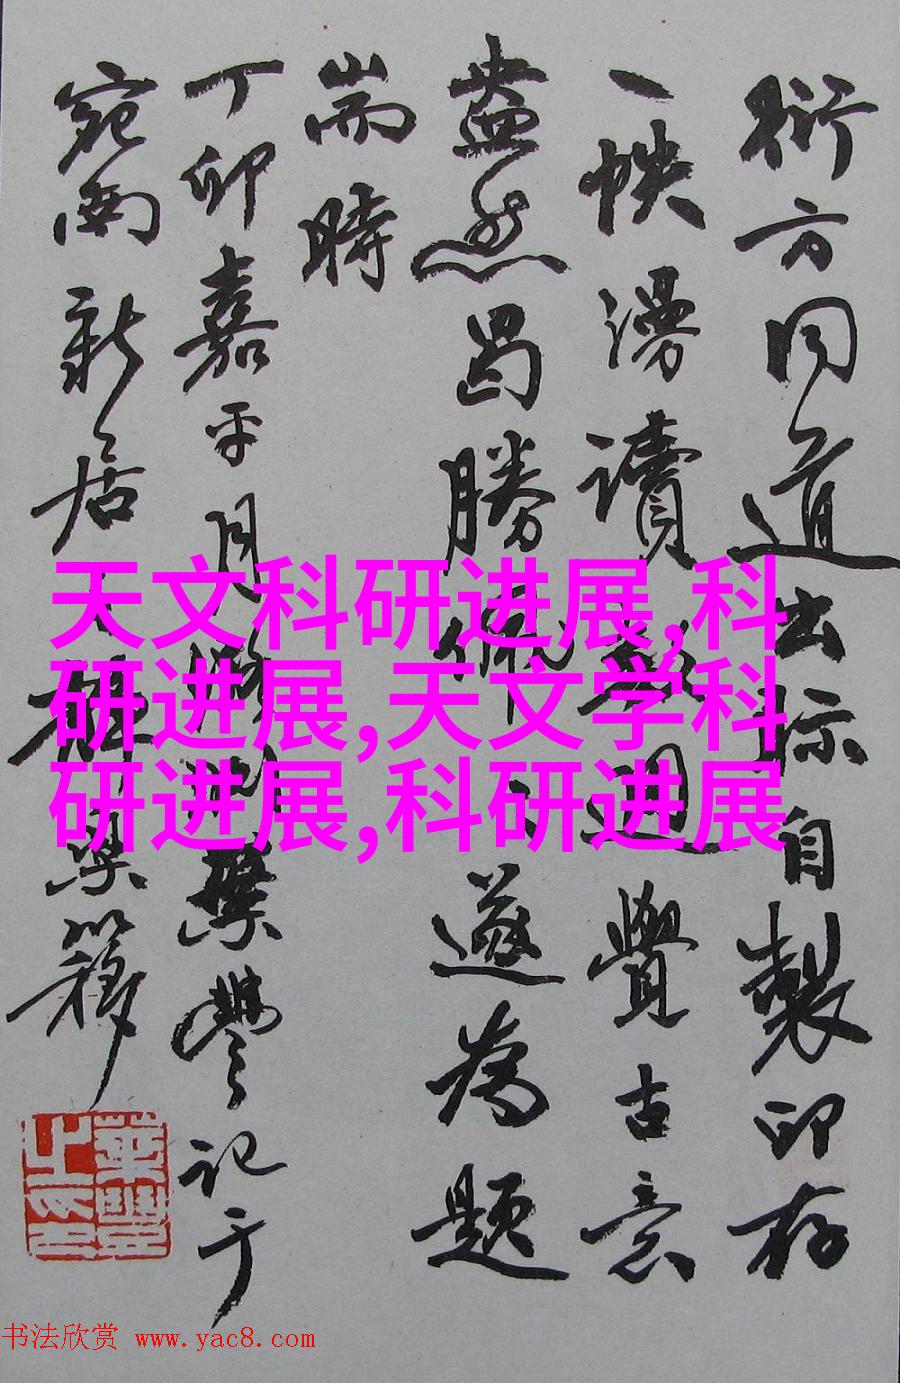 衍方同道出示自製印存
一帙漫讀數週覺古意
盎然曷勝佩 遂為題
耑時
丁卯嘉平月 葉豐記于
宛南新居 籜
天文科研进展,科
研进展,天文学科
研进展,科研进展
书法欣赏 www.yac8.com